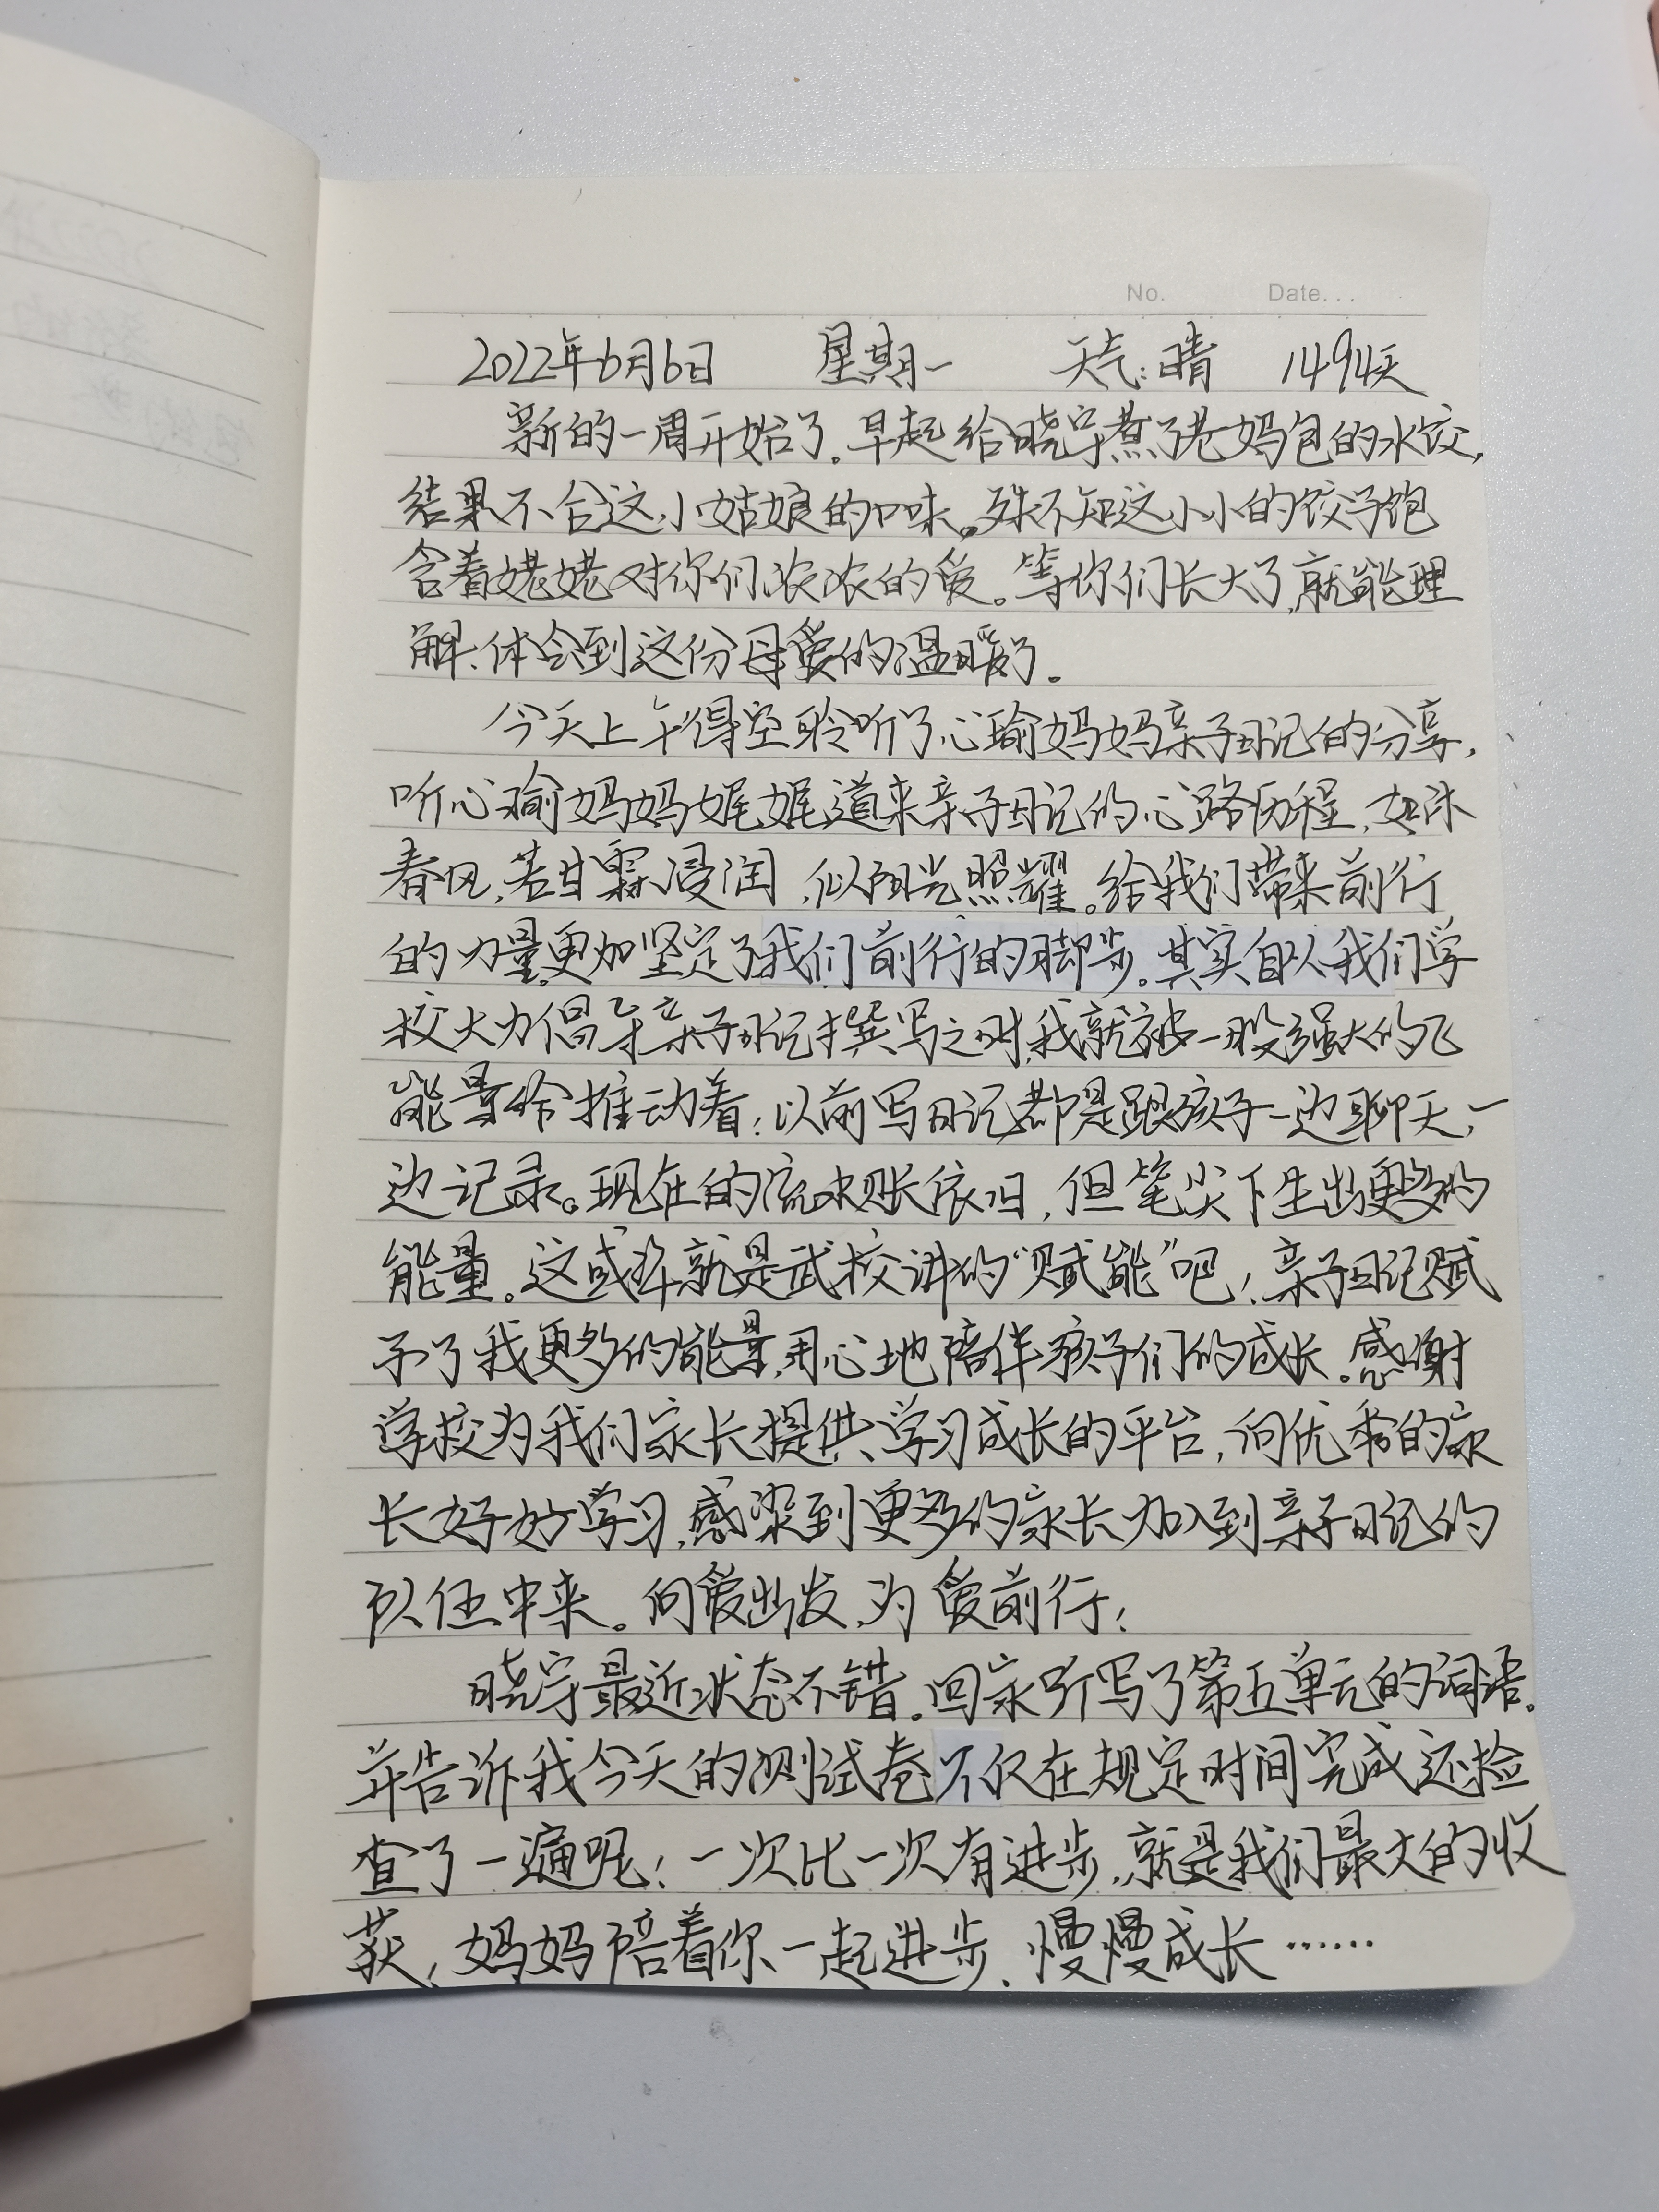 No. Date...
2022年6月6日 星期一 天气:晴 1494天
新的一周开始了。早起给晓宇煮了老妈包的水饺,
结果不合这小姑娘的口味。殊不知这小小的饺子饱
含着姥姥对你们浓浓的爱。等你们长大了,就能理
解、体会到这份母爱的温暖了。
今天上午得空聆听了心瑜妈妈亲子日记的分享,
听心瑜妈妈娓娓道来亲子日记的心路历程,如沐
春风,若甘霖浸润,似阳光照耀。给我们带来前行
的力量,更加坚定了我们前行的脚步。其实自从我们学
校大力倡导亲子日记撰写之时,我就被一股强大的
能量给推动着:以前写日记都是跟孩子一边聊天,一
边记录。现在的流水账依旧,但笔尖下生出更多的
能量。这或许就是武校讲的“赋能”吧!亲子日记赋
予了我更多的能量,用心地陪伴孩子们的成长。感谢
学校为我们家长提供学习成长的平台,向优秀的家
长好好学习,感染到更多的家长加入到亲子日记的
队伍中来。向爱出发,为爱前行!
晓宇最近状态不错。回家听写了第五单元的词语。
并告诉我今天的测试卷不仅在规定时间完成还检
查了一遍呢!一次比一次有进步,就是我们最大的收
获!妈妈陪着你一起进步、慢慢成长……